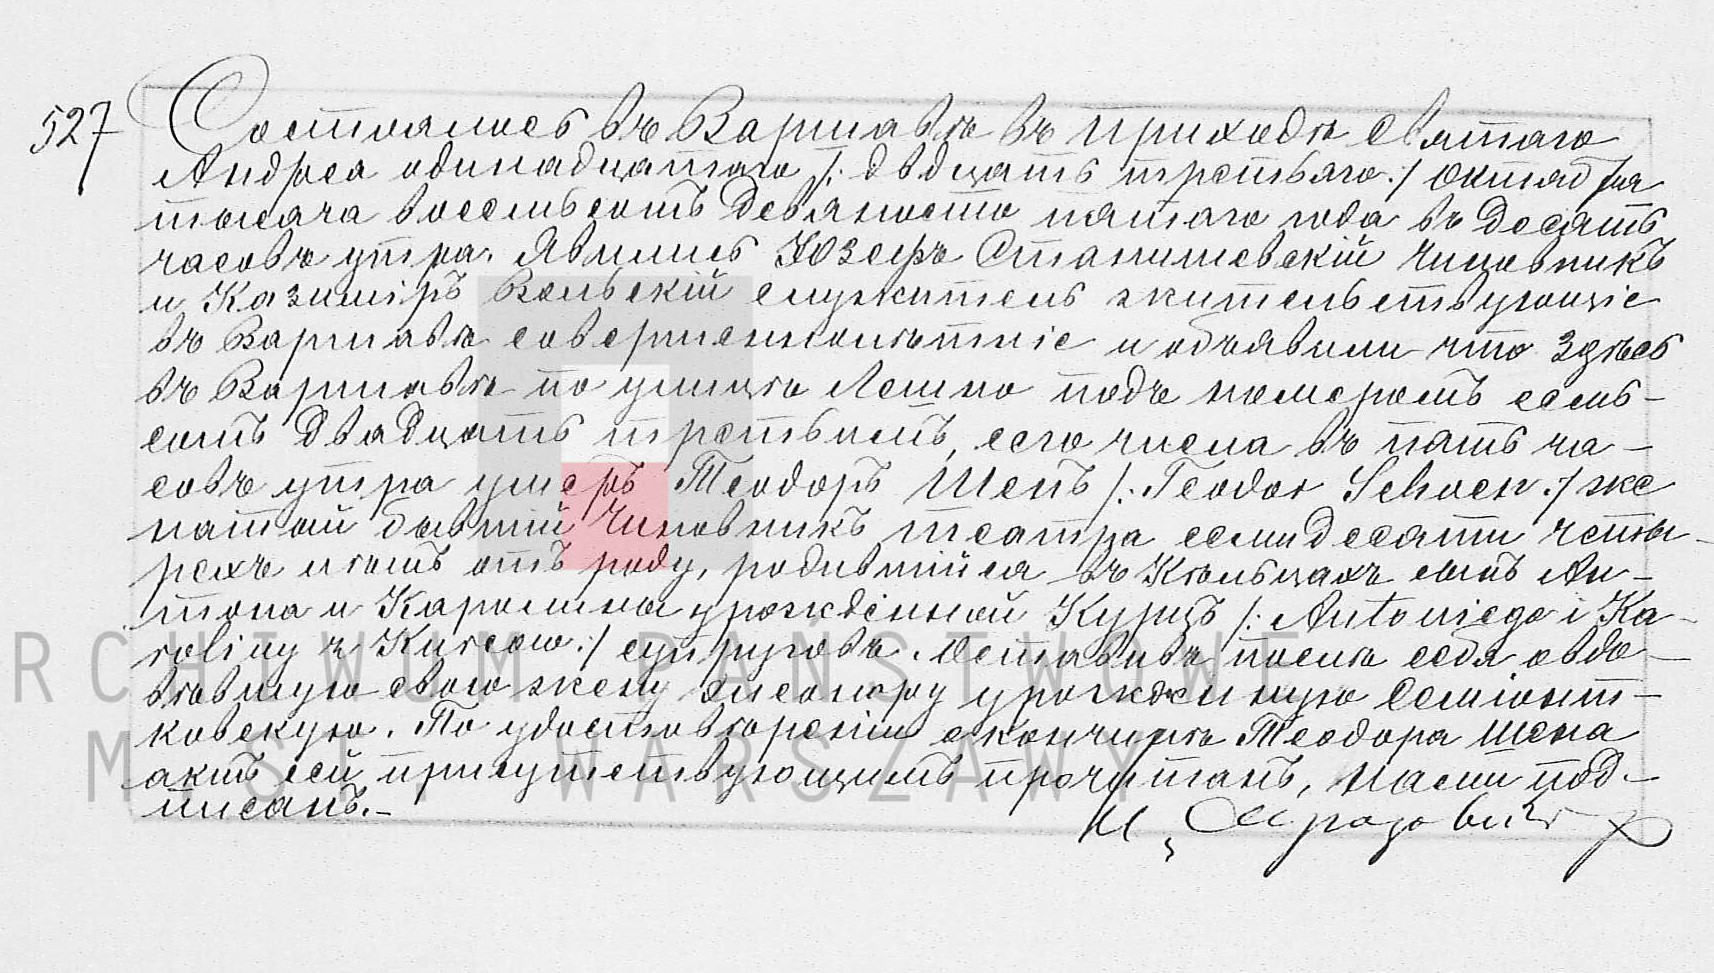 527 Состоялось въ Варшавѣ въ приходѣ Святаго
Андрея одинадцатаго /: двадцать третьяго :/ Октября
тысяча восемьсотъ девяносто пятаго года въ десять
часовъ утра. Явились Юзефъ Станишевскій чиновникъ
и Казиміръ Вольскій служитель жительствующіе
въ Варшавѣ совершеннолѣтніе и объявили что здѣсь
въ Варшавѣ по улицѣ Лешно подъ номеромъ семь-
сотъ двадцать третьимъ, сего числа въ пять ча-
совъ утра умеръ Теодоръ Шенъ /: Teodor Schoen :/ же
натый бывшій чиновникъ театра семидесяти четы-
рехъ лѣтъ отъ роду, родившійся въ Кѣльцахъ сынъ Ан-
тона и Каролины урожденной Курцъ /: Antoniego i Ka-
roliny z Kurców :/ супруговъ. Оставивъ послѣ себя овдо-
вѣвшую свою жену Элеонору урожденную Семіонт-
ковскую. По удостовѣреніи о кончинѣ Теодора Шена
актъ сей присутствующимъ прочитанъ, нами под-
писанъ.-
ARCHIWUM PAŃSTWOWE
M. ST. WARSZAWY